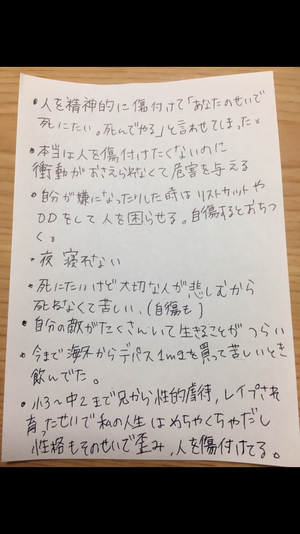 ・人を精神的に傷付けて「あなたのせいで
死にたい。死んでやる」と言わせてしまった。
・本当は人を傷付けたくないのに
衝動がおさえられなくて危害を与える
・自分が嫌になったりした時はリストカットや
ODをして人を困らせる。自傷するとおちつ
く。
・夜 寝れない
・死にたいけど大切な人が悲しむから
死ねなくて苦しい。(自傷も)
・自分の敵がたくさんいて生きることがつらい
・今まで海外からデパス1mgを買って苦しいとき
飲んでた。
・小3〜中2まで兄から性的虐待、レイプされ
育ったせいで私の人生はめちゃくちゃだし
性格もそのせいで歪み、人を傷付けてる。